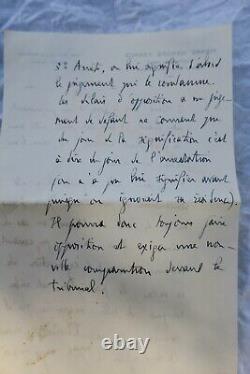 3° Arrêté, on lui signifie d'abord
le jugement qui le condamne
les délais d'opposition à un juge-
ment de défaut ne courent que
du jour de la signification c'est
à dire du jour de l'arrestation
(on n'a pu lui signifier avant
puisqu'on ignorait sa résidence).
Il pourra donc toujours faire
opposition et exiger une nou-
velle comparution devant le
tribunal.
© thecoes.com